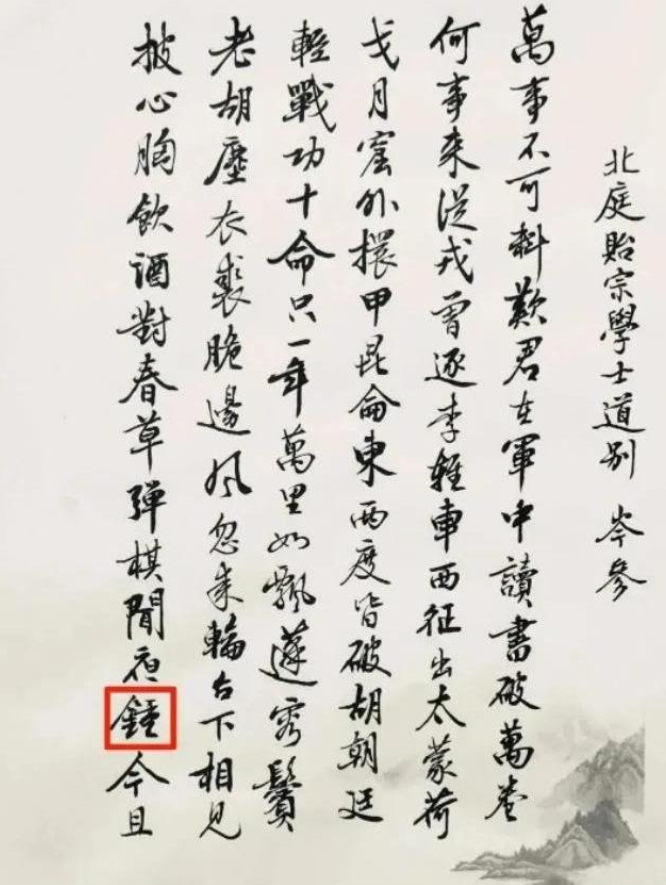 北庭貽宗學士道别 岑參
萬事不可料歎君在軍中讀書破萬卷
何事来從戎曾逐李輕車西征出太蒙荷
戈月窟外擐甲昆侖東两度皆破胡朝廷
輕戰功十命只一年萬里如飄蓬容鬢
老胡塵衣裘脆邊風忽来輪台下相見
披心胸飲酒對春草彈棋聞夜鍾今且